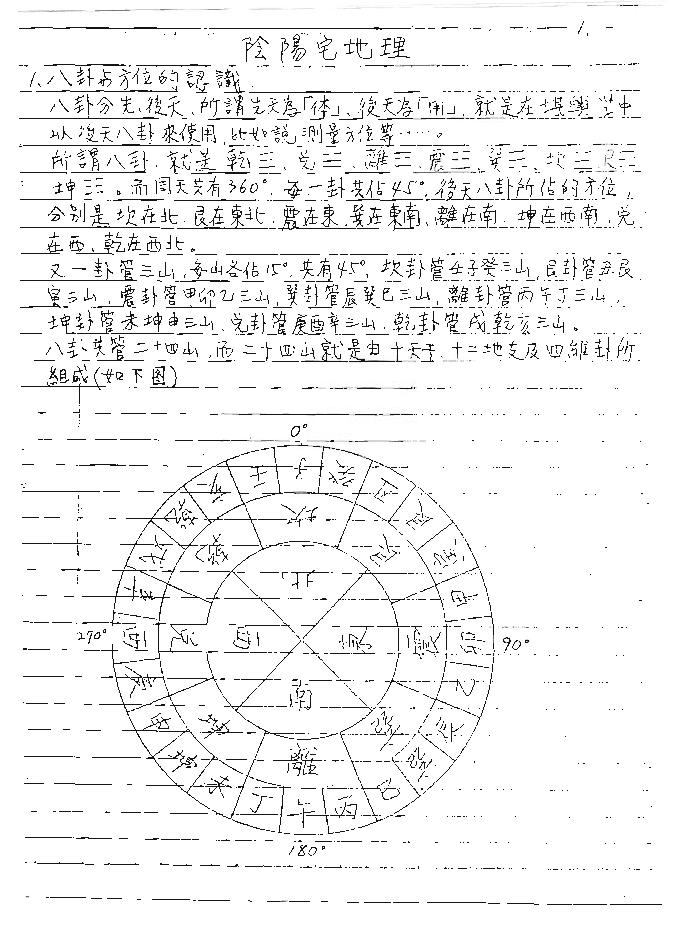 1.
陰陽宅地理
1.八卦与方位的認識
八卦分先、後天、所謂先天為「体」、後天為「用」、就是在堪輿学中
以後天八卦來使用,比如說,測量方位等……。
所謂八卦,就是乾☰、兌☱、離☲、震☳、巽☴、坎☵、艮☶
坤☷。而周天共有360°,每一卦共佔45°,後天八卦所佔的方位,
分別是坎在北、艮在東北、震在東、巽在東南、離在南、坤在西南、兌
在西、乾在西北。
又一卦管三山,每山各佔15°,共有45°,坎卦管壬子癸三山,艮卦管丑艮
寅三山,震卦管甲卯乙三山,巽卦管辰巽巳三山,離卦管丙午丁三山,
坤卦管未坤申三山,兌卦管庚酉辛三山,乾卦管戌乾亥三山。
八卦共管二十四山,而二十四山就是由十天干,十二地支及四維卦所
組成(如下图)
0°
壬 子 癸 丑 艮 寅 甲 卯 乙 辰 巽 巳 丙 午 丁 未 坤 申 庚 酉 辛 戌 乾 亥
坎 艮 震 巽 離 坤 兌 乾
北 東 南 西
270°
90°
180°